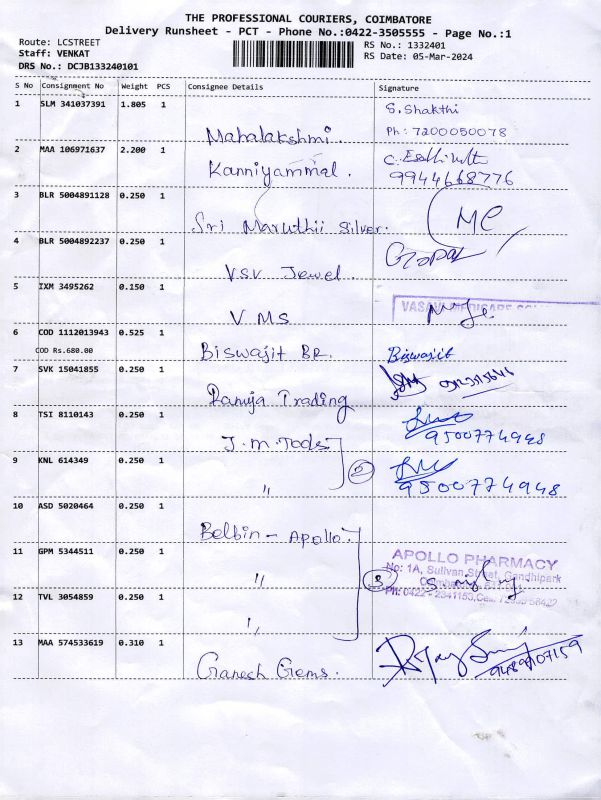 THE PROFESSIONAL COURIERS, COIMBATORE
Delivery Runsheet - PCT - Phone No.:0422-3505555 - Page No.:1
Route: LCSTREET
RS No.: 1332401
Staff: VENKAT
RS Date: 05-Mar-2024
DRS No.: DCJB133240101
S No Consignment No Weight PCS Consignee Details Signature
1 SLM 341037391 1.805 1 Mahalakshmi. S. Shakthi
Ph: 7200050078
2 MAA 106971637 2.200 1 Kanniyammal.
9944668776
3 BLR 5004891128 0.250 1 Sri Maruthii Silver. MC
4 BLR 5004892237 0.250 1 VSV Jewel. Gopal
5 IXM 3495262 0.150 1 VMS
6 COD 1112013943 0.525 1 Biswajit BR. Biswajit
COD Rs.680.00
7 SVK 15041855 0.250 1 Ramija Trading
8 TSI 8110143 0.250 1 J.M.Tools
9500774948
9 KNL 614349 0.250 1 " 2
9500774948
10 ASD 5020464 0.250 1 Belbin - Apollo
11 GPM 5344511 0.250 1 " 3 APOLLO PHARMACY
No: 1A, Sullivan Street, Gandhipark
12 TVL 3054859 0.250 1 "
13 MAA 574533619 0.310 1 Ganesh Gems.
9489107159